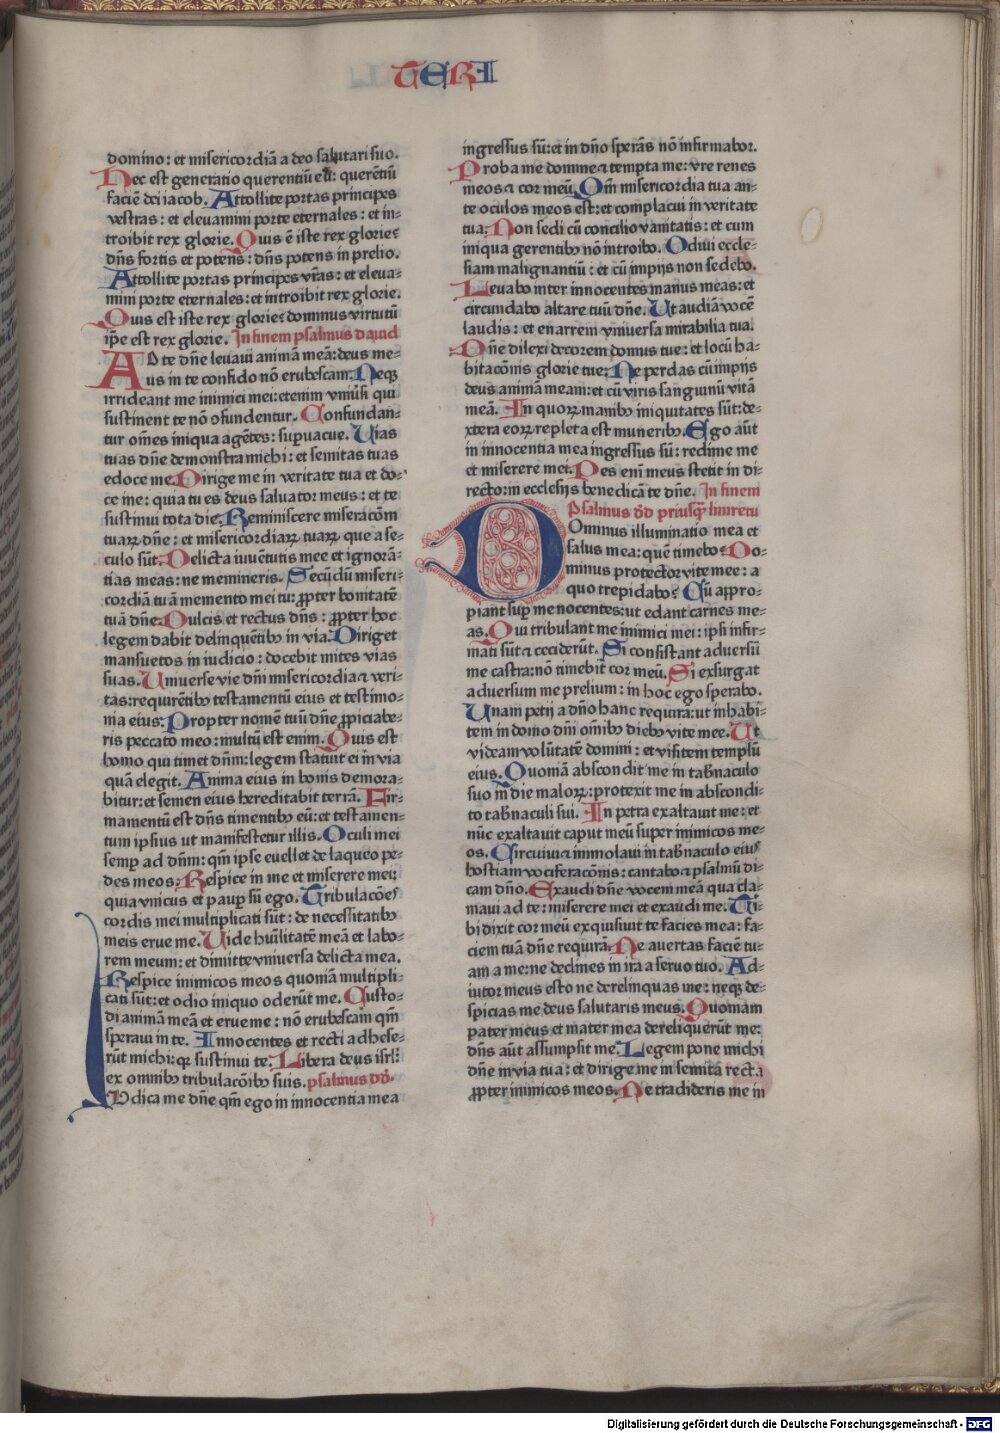 TERI
domino: et misericordiã a deo salutari suo.
Hec est generatio querentiũ eũ: querẽtiũ
faciẽ dei iacob. Attollite portas principes
vestras: et eleuamini porte eternales: et in-
troibit rex glorie. Quis ẽ iste rex glorie?
dñs fortis et potens: dñs potens in prelio.
Attollite portas principes vr̃as: et eleua-
mini porte eternales: et introibit rex glorie.
Quis est iste rex glorie? dominus virtutũ
ip̃e est rex glorie. In finem psalmus dauid
AD te dñe leuaui animã meã: deus me-
us in te confido nõ erubescam. Neqꝫ
irrideant me inimici mei: etenim vniũsi qui
sustinent te nõ ꝯfundentur. Confundan-
tur om̃es iniqua agẽtes: supuacue. Uias
tuas dñe demonstra michi: et semitas tuas
edoce me. Dirige me in veritate tua et do-
ce me: quia tu es deus saluator meus: et te
sustinui tota die. Reminiscere miseracõm
tuaꝝ dñe: et misericordiaꝝ tuaꝝ que a se-
culo sũt. Delicta iuuẽtutis mee et ignorã-
tias meas: ne memineris. Secũdũ miseri-
cordiã tuã memento mei tu: ꝓpter bonitatẽ
tuã dñe. Dulcis et rectus dñs: ꝓpter hoc
legem dabit delinquẽtibꝫ in via. Diriget
mansuetos in iudicio: docebit mites vias
suas. Uniuerse vie dñi misericordia ⁊ veri-
tas: requirẽtibꝫ testamentũ eius et testimo-
nia eius. Propter nomẽ tuũ dñe ꝓpiciabe-
ris peccato meo: multũ est enim. Quis est
homo qui timet dñm: legem statuit ei in via
quã elegit. Anima eius in bonis demora-
bitur: et semen eius hereditabit terrã. Fir-
mamentũ est dñs timentibꝫ eũ: et testamen-
tum ipsius ut manifestetur illis. Oculi mei
semꝑ ad dñm: qm̃ ipse euellet de laqueo pe-
des meos. Respice in me et miserere mei:
quia vnicus et paup sũ ego. Tribulacões
cordis mei multiplicati sũt: de necessitatibꝫ
meis erue me. Uide hũilitatẽ meã et labo-
rem meum: et dimitte vniuersa delicta mea.
Respice inimicos meos quoniã multipli-
cati sũt: et odio iniquo oderũt me. Custo-
di animã meã et erue me: nõ erubescam qm̃
speraui in te. Innocentes et recti adhese-
rũt michi: qꝫ sustinui te. Libera deus isrl̃:
ex omnibꝫ tribulacõibꝫ suis. psalmus dd̃.
Iudica me dñe qm̃ ego in innocentia mea
ingressus sũ: et in dño sperãs nõ infirmabor.
Proba me domine ⁊ tempta me: vre renes
meos ⁊ cor meũ. Qm̃ misericordia tua an-
te oculos meos est: et complacui in veritate
tua. Non sedi cũ concilio vanitatis: et cum
iniqua gerentibꝫ nõ introibo. Odiui eccle-
siam malignantiũ: et cũ impijs non sedebo.
Leuabo inter innocentes manus meas: et
circundabo altare tuũ dñe. Ut audiã vocẽ
laudis: et enarrem vniuersa mirabilia tua.
Dñe dilexi decorem domus tue: et locũ ha-
bitacõnis glorie tue. Ne perdas cũ impijs
deus animã meam: et cũ viris sanguinũ vitã
meã. In quoꝝ manibꝫ iniquitates sũt: de-
xtera eoꝝ repleta est muneribꝫ. Ego aũt
in innocentia mea ingressus sũ: redime me
et miserere mei. Pes enĩ meus stetit in di-
recto: in ecclesijs benedicã te dñe. In finem
Psalmus dd̃ priusq̃ liniretur
Dominus illuminatio mea et
salus mea: quẽ timebo? Do-
minus protector vite mee: a
quo trepidabo? Cũ appro-
piant sup me nocentes: ut edant carnes me-
as. Qui tribulant me inimici mei: ipsi infir-
mati sũt ⁊ ceciderũt. Si consistant aduersũ
me castra: nõ timebit cor meũ. Si exsurgat
aduersum me prelium: in hoc ego sperabo.
Unam petij a dño hanc requirã: ut inhabi-
tem in domo dñi om̃ibꝫ diebꝫ vite mee. Ut
videam volũtatẽ domini: et visitem templũ
eius. Quoniã abscondit me in tab̃naculo
suo in die maloꝝ: protexit me in abscondi-
to tab̃naculi sui. In petra exaltauit me: et
nũc exaltauit caput meũ super inimicos me-
os. Circuiui ⁊ immolaui in tab̃naculo eius
hostiam vociferacõnis: cantabo ⁊ psalmũ di-
cam dño. Exaudi dñe vocem meã qua cla-
maui ad te: miserere mei et exaudi me. Ti-
bi dixit cor meũ exquisiuit te facies mea: fa-
ciem tuã dñe requirã. Ne auertas faciẽ tu-
am a me: ne declines in ira a seruo tuo. Ad-
iutor meus esto ne derelinquas me: neqꝫ de-
spicias me deus salutaris meus. Quoniam
pater meus et mater mea dereliquerũt me:
dñs aũt assumpsit me. Legem pone michi
dñe in via tua: et dirige me in semita recta
ꝓpter inimicos meos. Ne tradideris me in
Digitalisierung gefördert durch die Deutsche Forschungsgemeinschaft - DFG